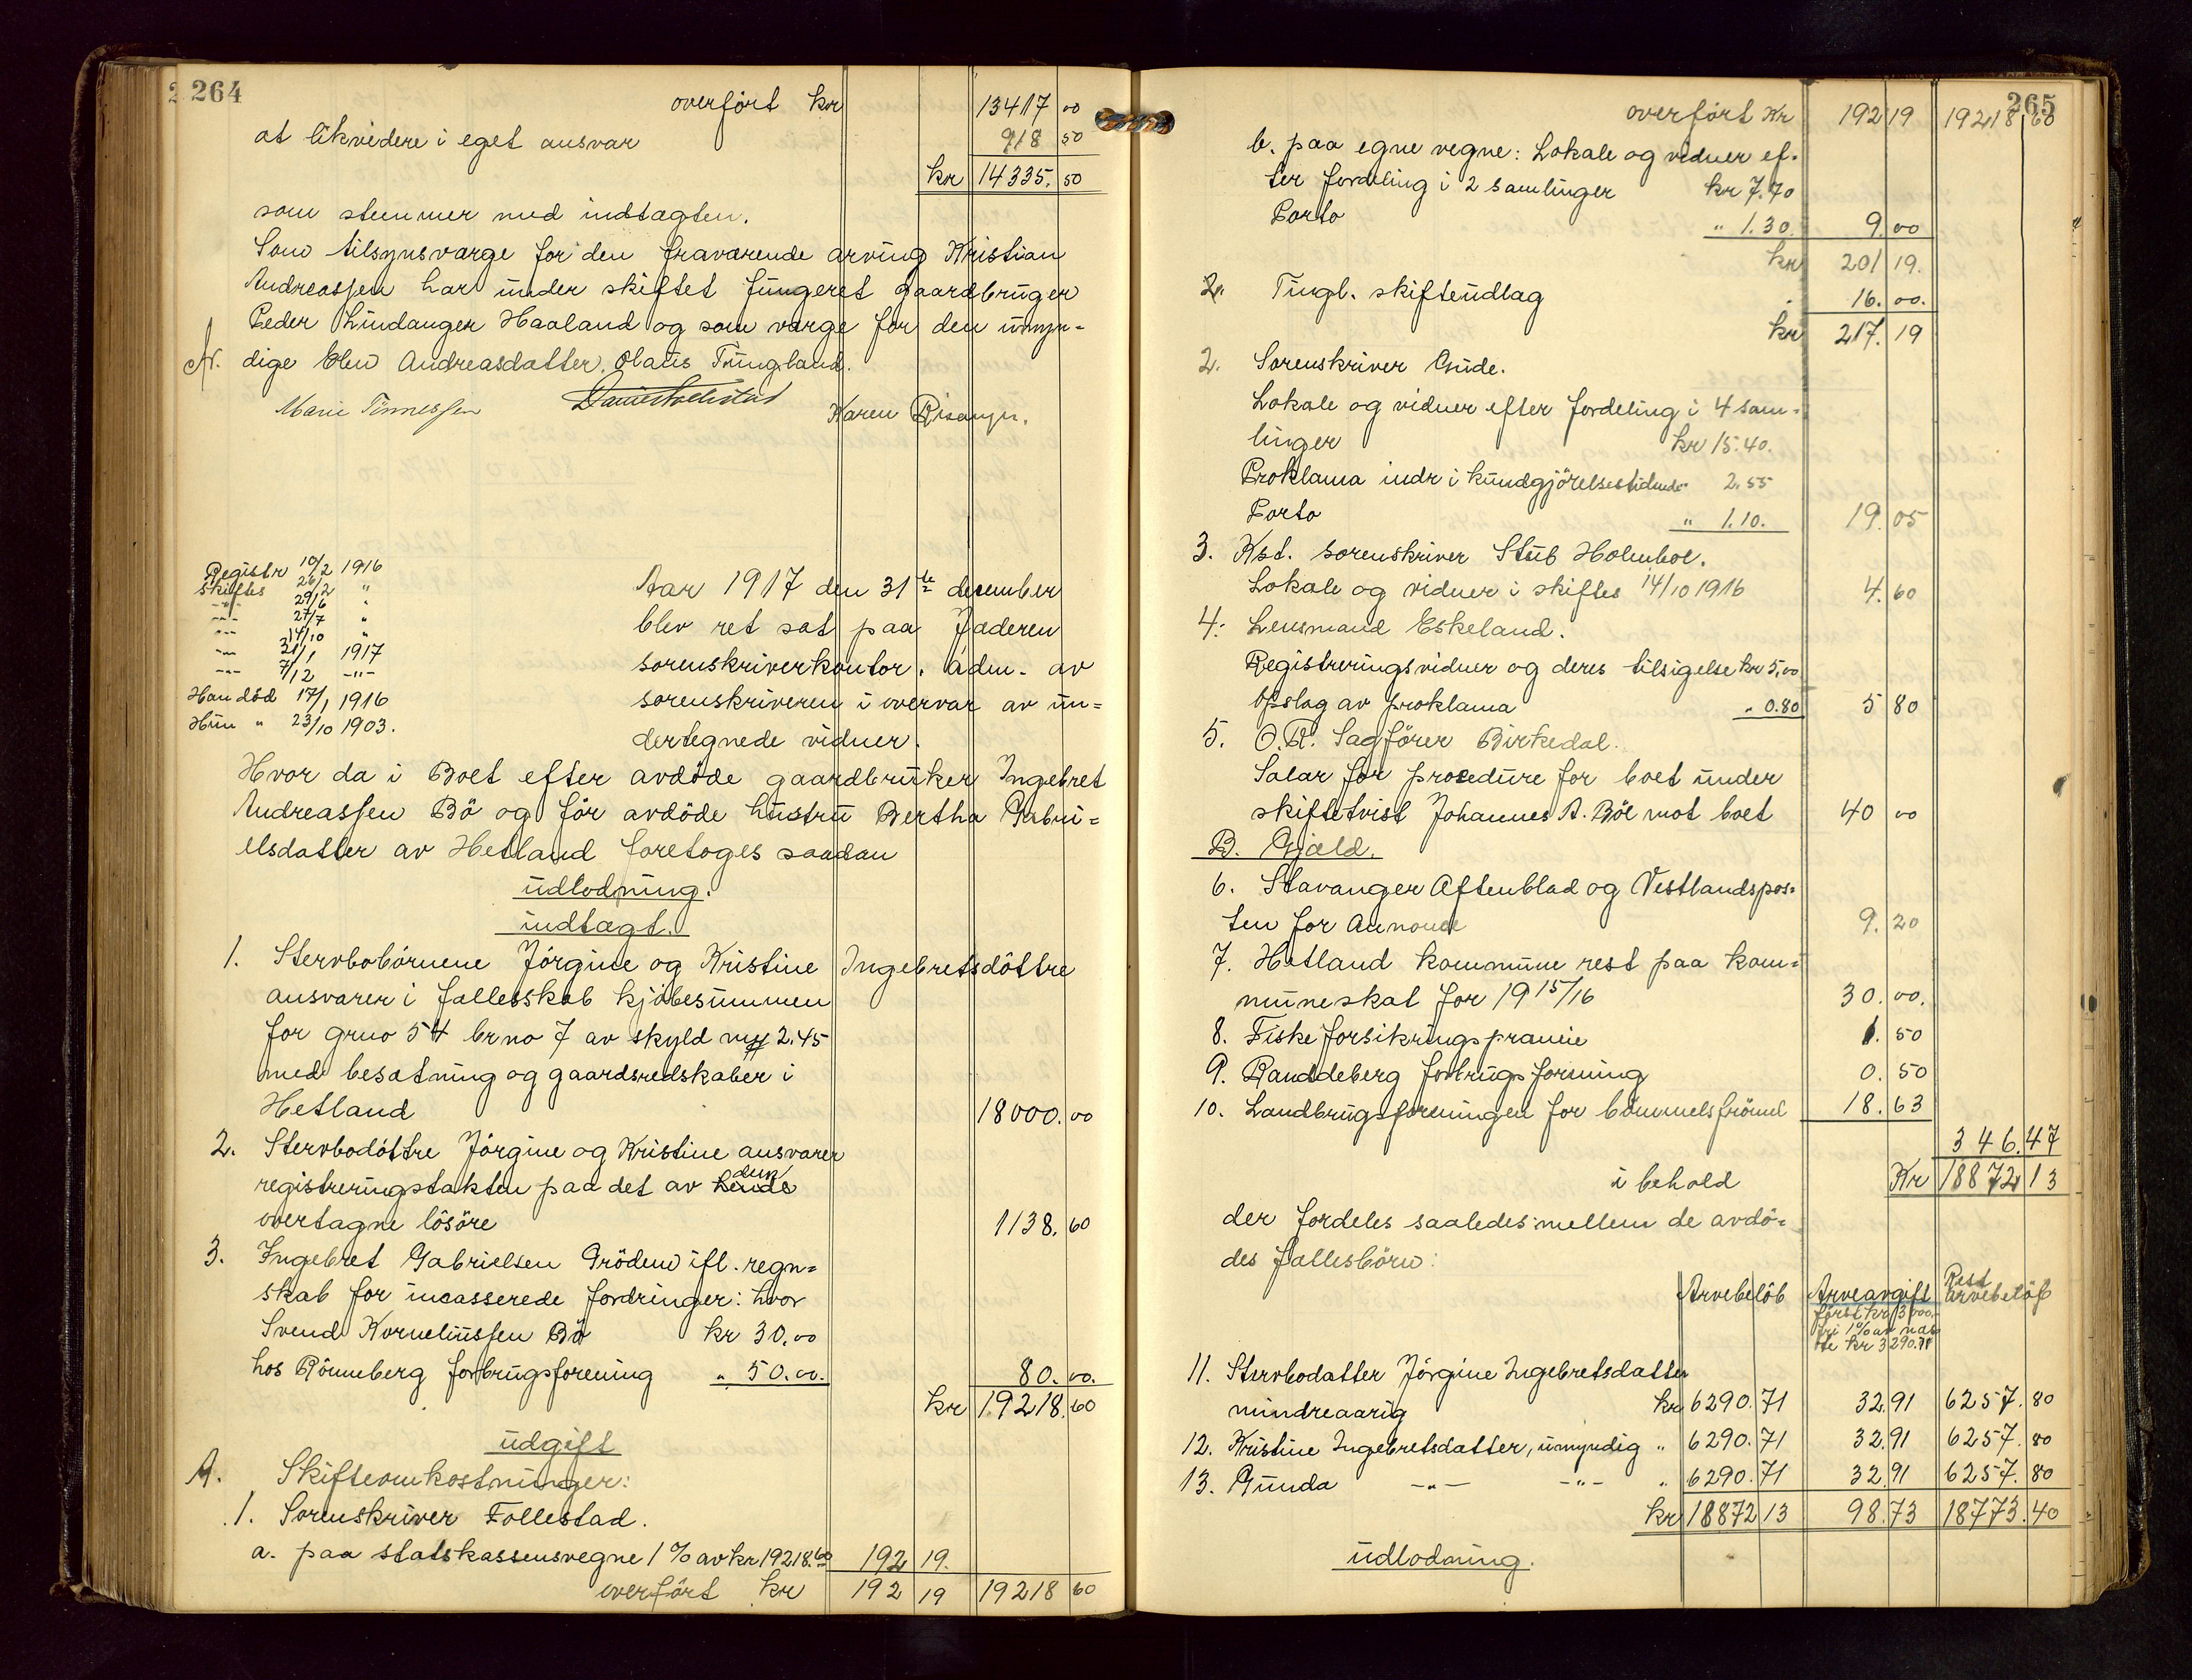 264
overført kr 13417 00
at likvidere i eget ansvar 918 50
kr 14335. 50
som stemmer med indtægten.
Som tilsynsværge for den fraværende arving Kristian
Andreassen har under skiftet fungeret gaardbruger
Peder Lindanger Haaland og som værge for den umyn=
dige Elen Andreasdatter, Olaus Tungland.
Marie Tönnessen Karen Risangn.
Registr 10/2 1916
Skiftes 26/2 "
-"- 29/6 "
-"- 27/7 "
-"- 14/10 "
-"- 21/1 1917
-"- 7/12 -"-
Han död 17/1 1916
Hun " 23/10 1903.
Aar 1917 den 31te december
blev ret sat paa Jæderen
sorenskriverkontor, adm. av
sorenskriveren i overvær av un=
dertegnede vidner.
Hvor da i Boet efter avdöde gaardbruker Ingebret
Andreassen Bö og för avdöde hustru Bertha Gabri=
elsdatter av Hetland foretoges saadan
udlodning.
indtægt.
1. Stervbobörnene Jörgine og Kristine Ingebretsdöttre
ansvarer i fællesskab kjöbesummen
for grno 54 brno 7 av skyld my 2.45
med besætning og gaardsredskaber i
Hetland 18000. 00
2. Stervbodöttre Jörgine og Kristine ansvarer
registreringstaksten paa det av hende dem
overtagne lösöre 1138. 60
3. Ingebret Gabrielsen Grödem ifl. regn=
skab for incasserede fordringer: hvor
Svend Korneliussen Bö kr 30.00
hos Rönneberg forbrugsforening " 50.00. 80. 00.
kr 19218. 60
udgift
A. Skifteomkostninger:
1. Sorenskriver Follestad.
a. paa statskassensvegne 1% av kr 19218.60 192 19.
overført kr 192 19 19218 60
265
overfört kr 192 19 19218 60
b. paa egne vegne: Lokale og vidner ef-
ter fordeling i 2 samlinger kr 7.70
Porto " 1.30. 9. 00
kr 201 19.
2. Tingl. skifteudlag 16. 00.
kr 217. 19
2. Sorenskriver Gude.
Lokale og vidner efter fordeling i 4 sam=
linger kr 15.40.
Proklama indr i kundgjörelsestidende 2.55
Porto " 1.10. 19. 05
3. Kst. sorenskriver Stub Holmboe.
Lokale og vidner i skiftes 14/10 1916 4. 60
4: Lensmand Eskeland.
Registreringsvidner og deres tilsigelse kr 5,00
Opslag av proklama " 0.80 5 80
5. O.R. Sagförer Birkedal.
Salær for procedure for boet under
skiftetvist Johannes A. Böe mot boet 40 00
B. Gjæld.
6. Stavanger Aftenblad og Vestlandspos=
ten for Annonce 9. 20
7. Hetland kommune rest paa kom=
muneskat for 1915/16 30. 00.
8. Fiskeforsikringspræmie 1. 50
9. Randdeberg forbrugsforening 0. 50
10. Landbrugsforeningen for bommelsfrömel 18. 63
346. 47
i behold Kr 18872 13
der fordeles saaledes mellem de avdö=
des fællesbörn:
Arvebelöb Arveavgift Rest arvebelöb
först kr 3000,-
fri 1% av næs
te kr 3290.71
11. Stervbodatter Jörgine Ingebretsdatter
mindreaarig kr 6290. 71 32. 91 6257. 80
12. Kristine Ingebretsdatter, umyndig " 6290. 71 32. 91 6257. 80
13. Gunda -"- -"- " 6290. 71 32. 91 6257. 80
kr 18872 13 98. 73 18773. 40
udlodning.